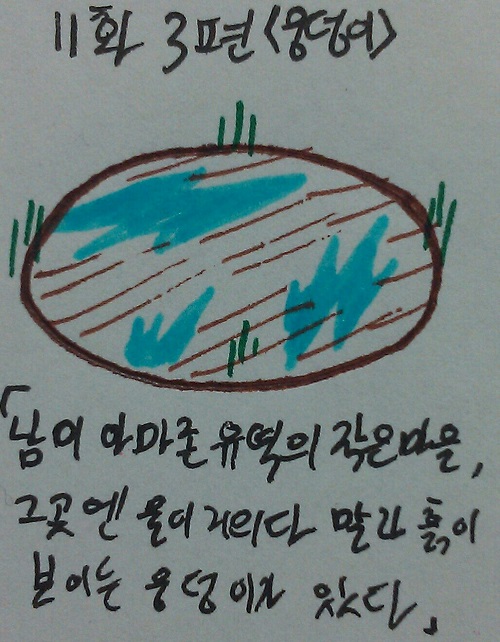 11화 3편 <웅덩이>
「남미 아마존 유역의 작은마을,
그곳엔 물이 거의다 말라 흙이
보이는 웅덩이가 있다.」